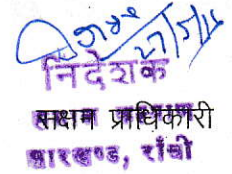 27/5/16
निदेशक
सक्षम प्राधिकारी
झारखण्ड, राँची